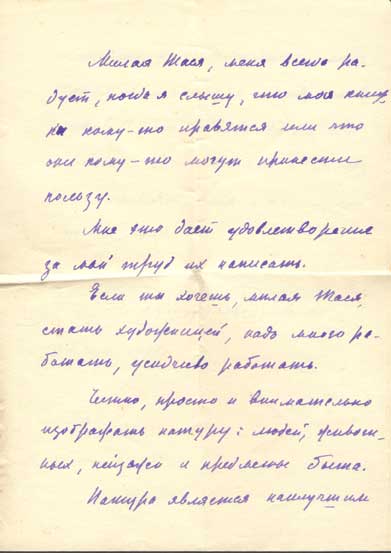 Милая Тася, меня всегда ра-
дует, когда я слышу, что мои книж
ки кому-то нравятся или что
они кому-то могут принести
пользу.
Мне это дает удовлетворение
за мой труд их написать.
Если ты хочешь, милая Тася,
стать художницей, надо много ра-
ботать, усидчиво работать.
Честно, просто и внимательно
изображать натуру: людей, живот-
ных, пейзажи и предметы быта.
Натура является наилучшим